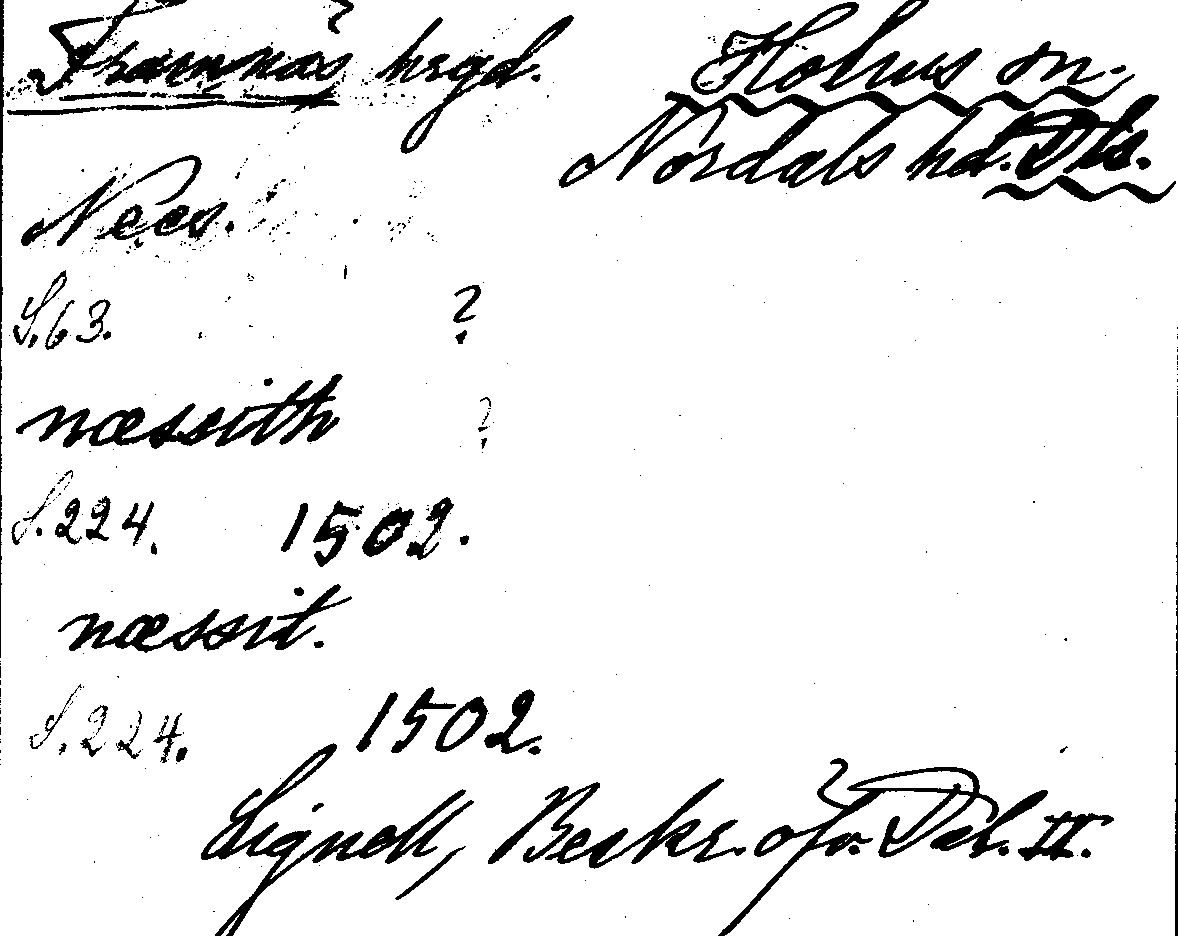 Framnäs hrgd.
Holms sn.
Nordals hd. Dls.
Nees.
S.63. ?
næssith ?
S.224. 1502.
næssit.
S.224. 1502.
Lignell, Beskr. öfv. Dal. II.